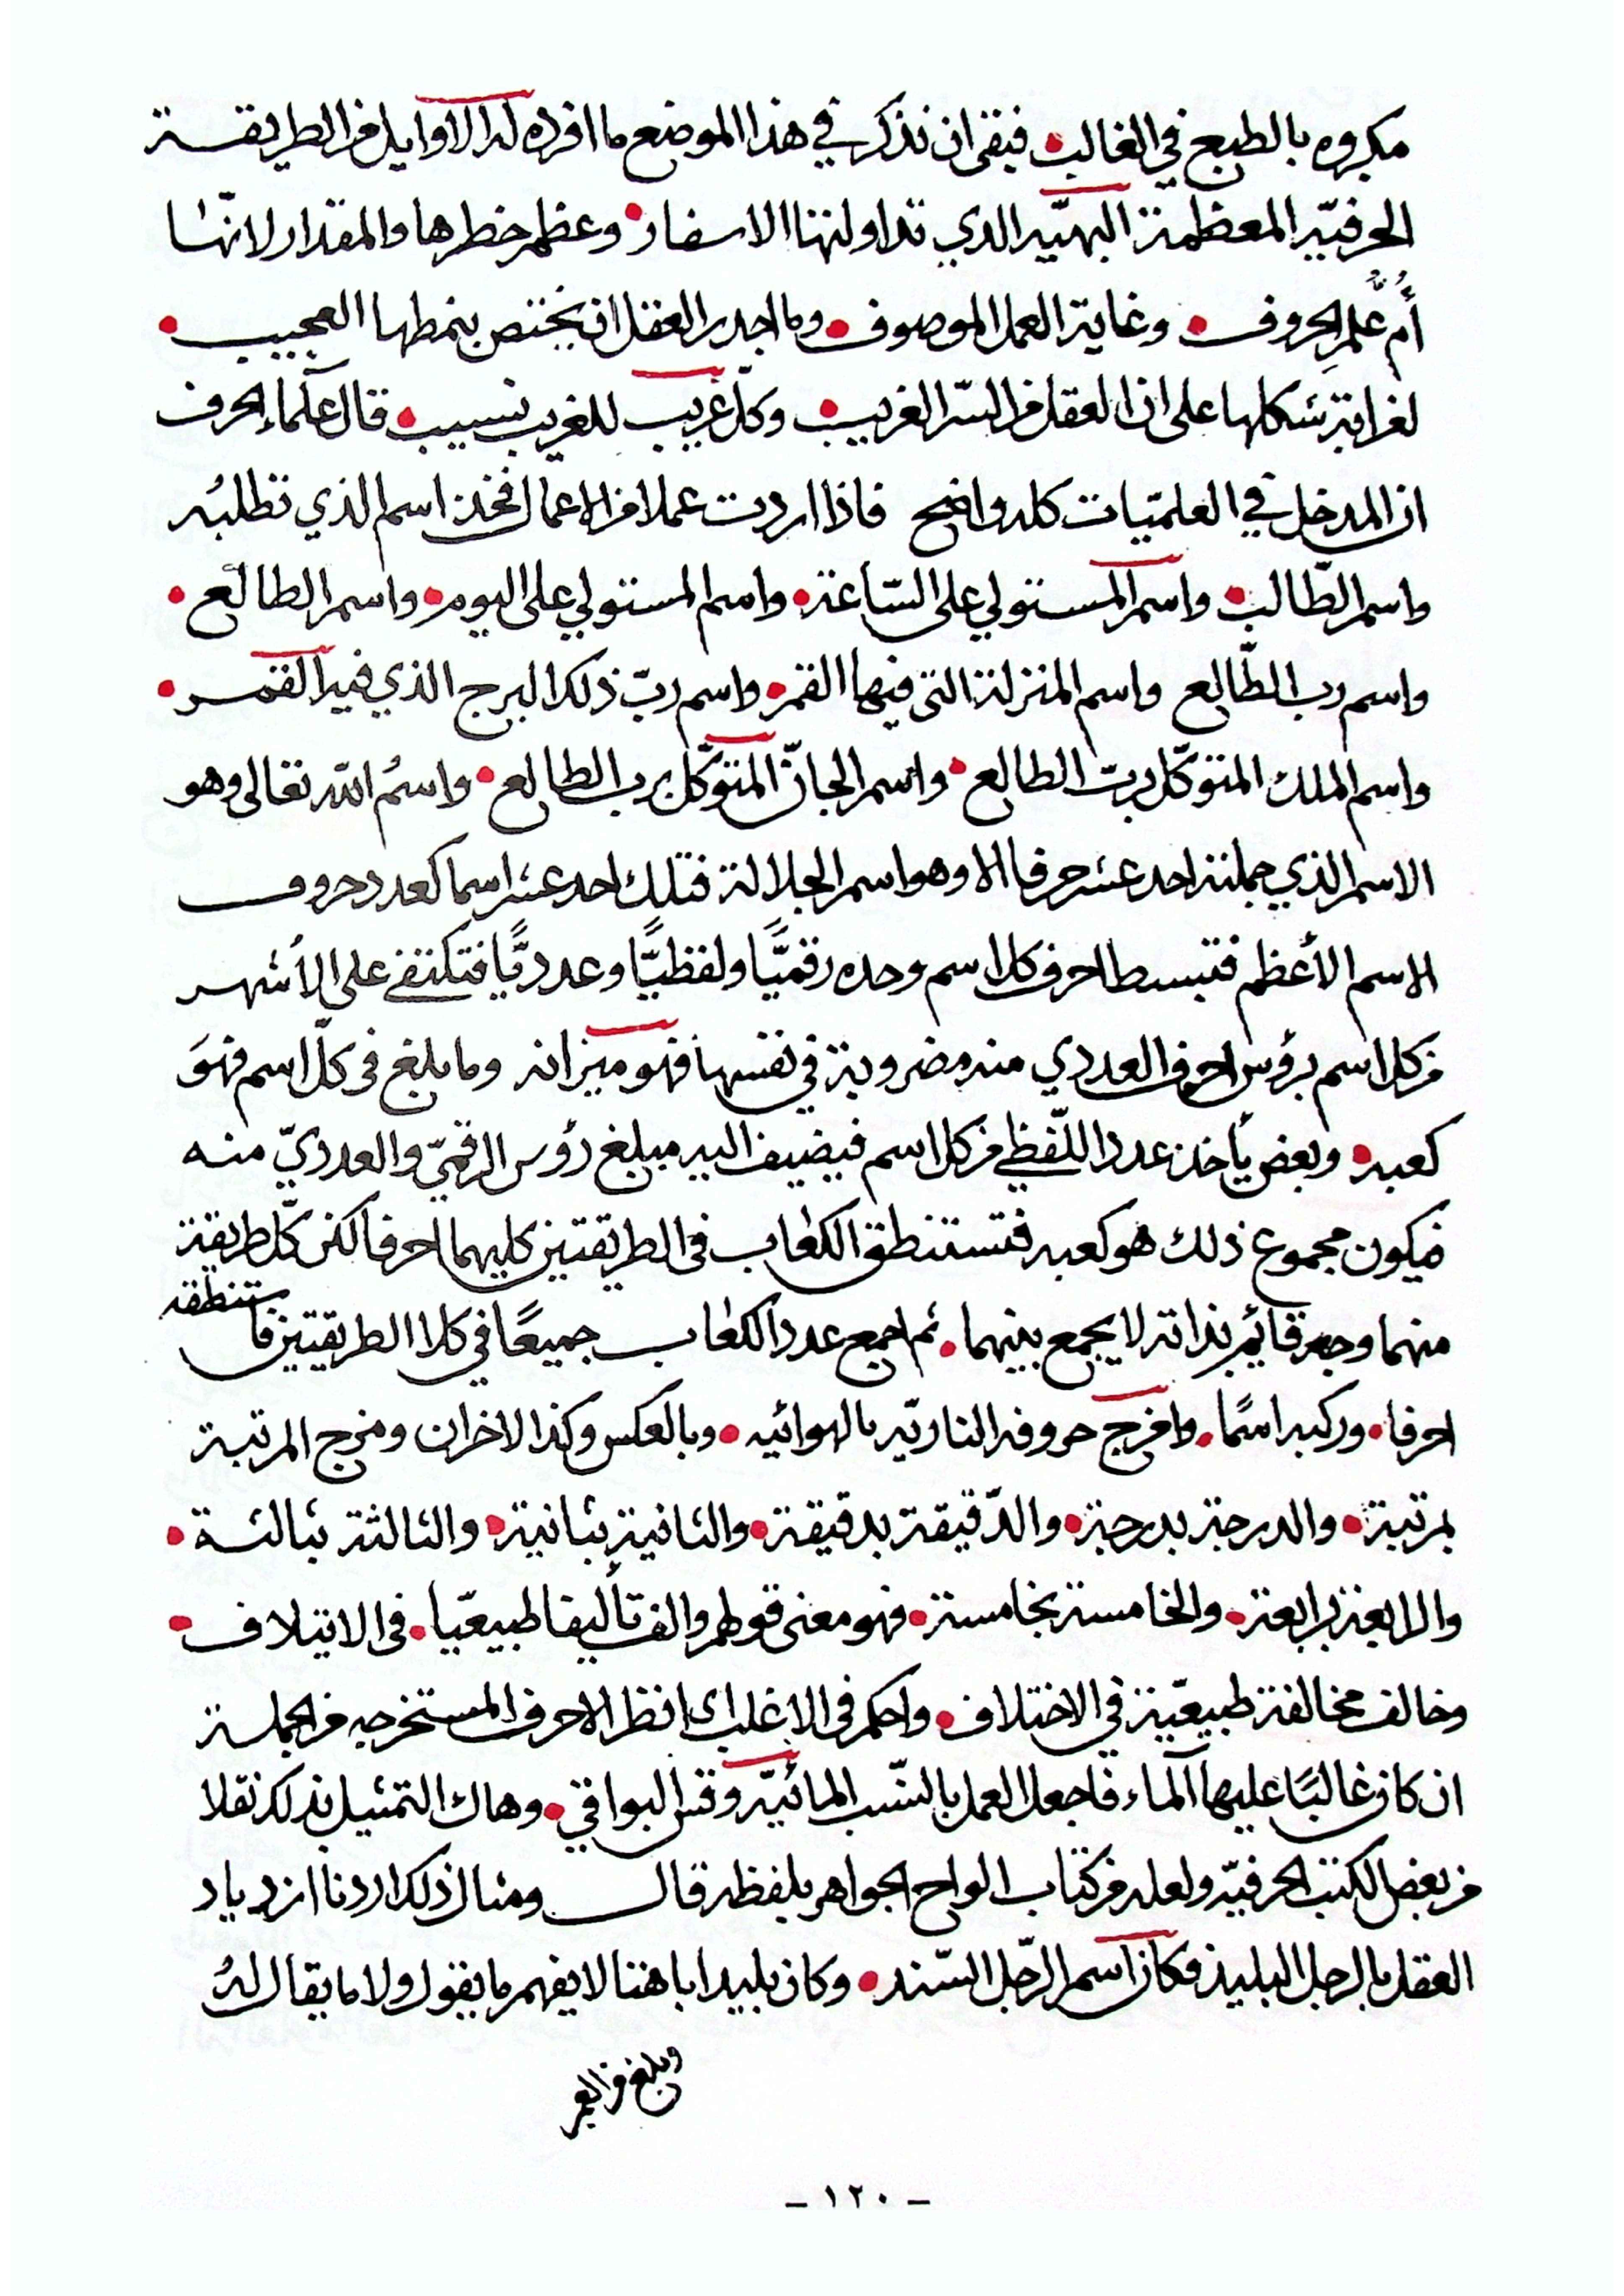 مكروه بالطبع في الغالب • فبقي ان نذكر في هذا الموضع ما افرده له الاوايل من الطريقة
الحرفيّه المعظمة البهيّه الذي تداولتها الاسفار • وعظم خطرها والمقدار لانّها
أُمُّ عُلمِ الحروف • وغاية العمل الموصوف • وما اجدر العقل ان يختص بنمطها العجيب •
لغرابة شكلها على ان العقل من السّر الغريب • وكلّ غريب للغريب نسيب • قال علماء الحرف
ان المدخل في العلميّات كله واضح فاذا اردت عملا من الاعمال فخذ اسم الذي تطلبُه
واسم الطّالب • واسم المستولي على السّاعة • واسم المستولي على اليوم • واسم الطالع •
واسم رب الطّالع واسم المنزلة التى فيها القمر • واسم ربّ ذلك البرج الذي فيه القمر •
واسم الملك المتوكّل بربّ الطالع • واسم الجانّ المتوكّل برب الطالع • واسمُ الله تعالى وهو
الاسم الذي جملته احد عشر حرفا الا وهو اسم الجلالة فتلك احد عشر اسما كعدد حروف
الاسم الأعظم فتبسط احرف كل اسم وحده رقميًّا ولفظيًّا وعدديًّا فتكتفے على الأشهر
من كل اسم برؤس احرف العددي منه مضروبة في نفسها فهو ميزانه وما بلغ فى كلّ اسم فهوَ
كعبه • وبعض يأخذ عدد اللّفظي من كل اسم فيضيف اليه مبلغ رؤس الرقميّ والعدديّ منه
فيكون مجموع ذلك هو كعبه فتستنطق الكعاب فى الطريقتين كليهما احرفا لكن كلّ طريقة
منهما وجه قائم بذاته لا يجمع بينهما • ثم اجمع عدد الكعاب جميعًا في كلا الطريقتين فاستنطقه
احرفا • وركبه اسمًا • وامزج حروفه الناريّه بالهوائيه • وبالعكس وكذا الاخران ومزج المرتبة
بمرتبة • والدرجة بدرجة • والدّقيقة بدقيقة • والثانية بثانية • والثالثة بثالثة •
والرابعة برابعة • والخامسة بخامسة • فهو معنى قولهم والف تأليفا طبيعيّا • فى الايتلاف •
وخالف مخالفة طبيعيّة في الاختلاف • واحكم فى الاغلب اى انظر الاحرف المستخرجه من الجملة
ان كان غالبًا عليها الماء فاجعل العمل بالنسّب المائيّه وقس البواقي • وهاك التمثيل بذلك نقلا
من بعض الكتب الحرفيّه ولعله من كتاب الواح الجواهر بلفظه قال ومثال ذلك اردنا ازدياد
العقل بالرجل البليد فكان اسم الرّجل السّند • وكان بليدا باهتا لا يفهم ما يقول ولا ما يقال لهُ
وبلغ من العمر
- ١٢٠ -